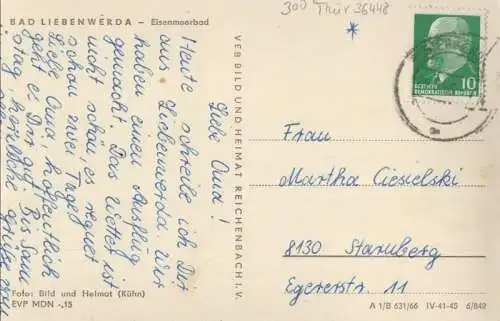 BAD LIEBENWERDA – Eisenmoorbad
Liebe Oma!
Heute schreibe ich Dir
aus Liebenwerda. Wir
haben einen Ausflug
gemacht. Das Wetter ist
nicht schön, es regnet
schon zwei Tage.
Liebe Oma, hoffentlich
geht es Dir gut. Bis Sam
stag, herzliche Grüße
Foto: Bild und Heimat (Kühn)
EVP MDN -,15
VEB BILD UND HEIMAT REICHENBACH I. V.
300 Thür 36448
*
DEUTSCHE
DEMOKRATISCHE REPUBLIK
10
Frau
Martha Cieselski
8130 Starnberg
Egererstr. 11
A 1/B 631/66 IV-41-45 6/842